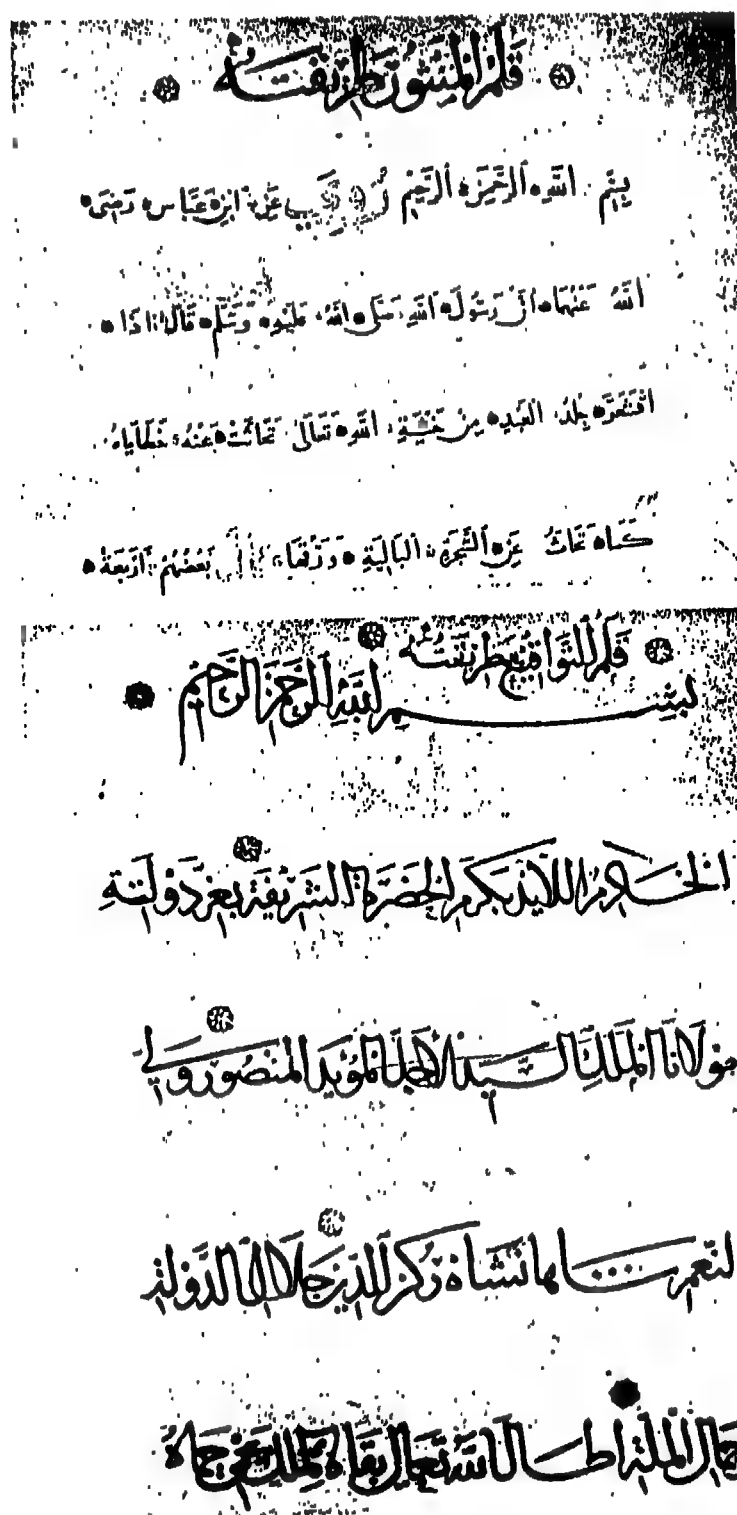 قلم المنثور طريقته
بسم الله الرحمن الرحيم عن ابن عباس رضي
الله عنهما أن رسول الله صلى الله عليه وسلم قال إذا
اقشعر جلد العبد من خشية الله تعالى تحاتت عنه خطاياه
كما تحات عن الشجرة البالية ورقها بعضهم أربعة
قلم التواقيع طريقته
بسم الله الرحمن الرحيم
الخادم اللائذ بكرم الحضرة الشريفة بعز دولة
مولانا الملك السيد الأجل المؤيد المنصور ولي
النعم شاهانشاه ركن الدين جلال الدولة
جمال الملة اطال الله تعالى بقاه